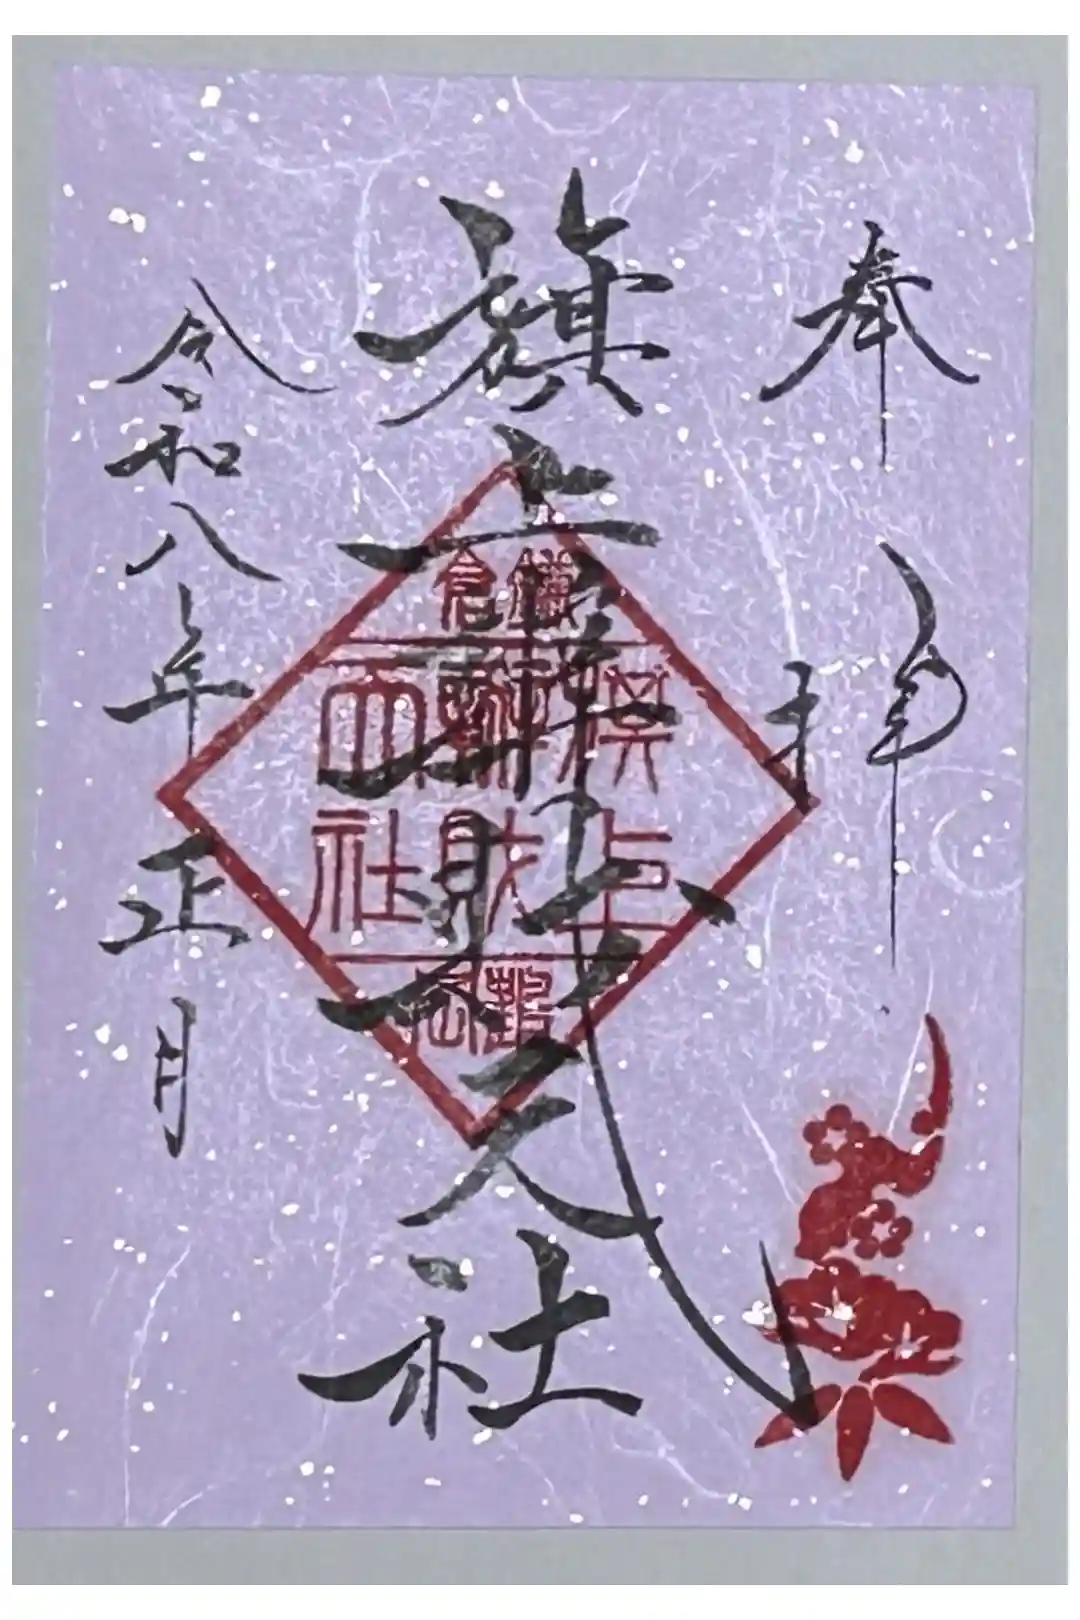 奉拝
旗上弁財天社
鎌倉
旗上
辨財
天社
鶴岡
令和八年正月